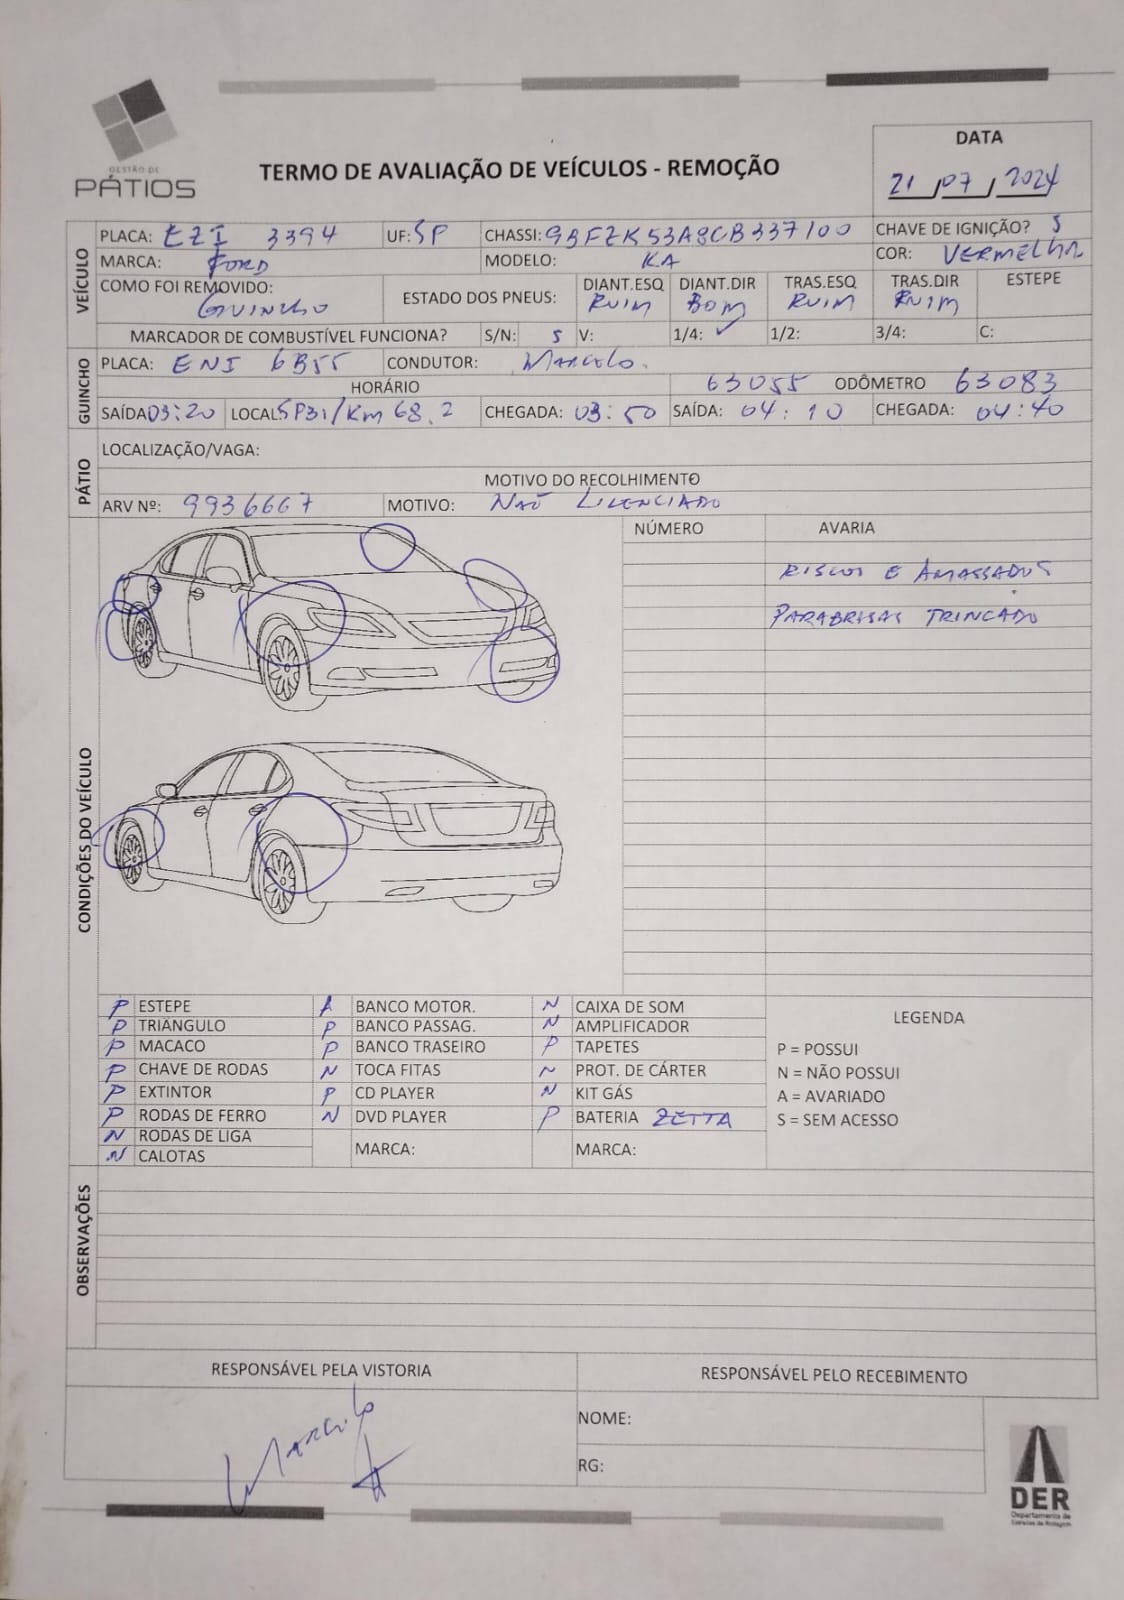 GESTÃO DE
PÁTIOS
TERMO DE AVALIAÇÃO DE VEÍCULOS - REMOÇÃO
DATA
21/07/2024
VEÍCULO
PLACA: EZI 3394 UF: SP CHASSI: 9BFZK53A8CB337100 CHAVE DE IGNIÇÃO? S
MARCA: FORD MODELO: KA COR: VERMELHA
COMO FOI REMOVIDO: GUINCHO ESTADO DOS PNEUS: DIANT.ESQ RUIM DIANT.DIR BOM TRAS.ESQ RUIM TRAS.DIR RUIM ESTEPE
MARCADOR DE COMBUSTÍVEL FUNCIONA? S/N: S V: 1/4: ✓ 1/2: 3/4: C:
GUINCHO
PLACA: ENI 6B55 CONDUTOR: MARCELO.
HORÁRIO 63055 ODÔMETRO 63083
SAÍDA 03:20 LOCAL SP31/KM 68.2 CHEGADA: 03:50 SAÍDA: 04:10 CHEGADA: 04:40
PÁTIO
LOCALIZAÇÃO/VAGA:
MOTIVO DO RECOLHIMENTO
ARV Nº: 9936667 MOTIVO: NÃO LICENCIADO
CONDIÇÕES DO VEÍCULO
NÚMERO AVARIA
RISCOS E AMASSADOS
PARABRISAS TRINCADO
P ESTEPE A BANCO MOTOR. N CAIXA DE SOM
P TRIÂNGULO P BANCO PASSAG. N AMPLIFICADOR
P MACACO P BANCO TRASEIRO P TAPETES
P CHAVE DE RODAS N TOCA FITAS N PROT. DE CÁRTER
P EXTINTOR P CD PLAYER N KIT GÁS
P RODAS DE FERRO N DVD PLAYER P BATERIA ZETTA
N RODAS DE LIGA MARCA: MARCA:
N CALOTAS
LEGENDA
P = POSSUI
N = NÃO POSSUI
A = AVARIADO
S = SEM ACESSO
OBSERVAÇÕES
RESPONSÁVEL PELA VISTORIA
MARCELO
RESPONSÁVEL PELO RECEBIMENTO
NOME:
RG:
DER
Departamento de
Estradas de Rodagem